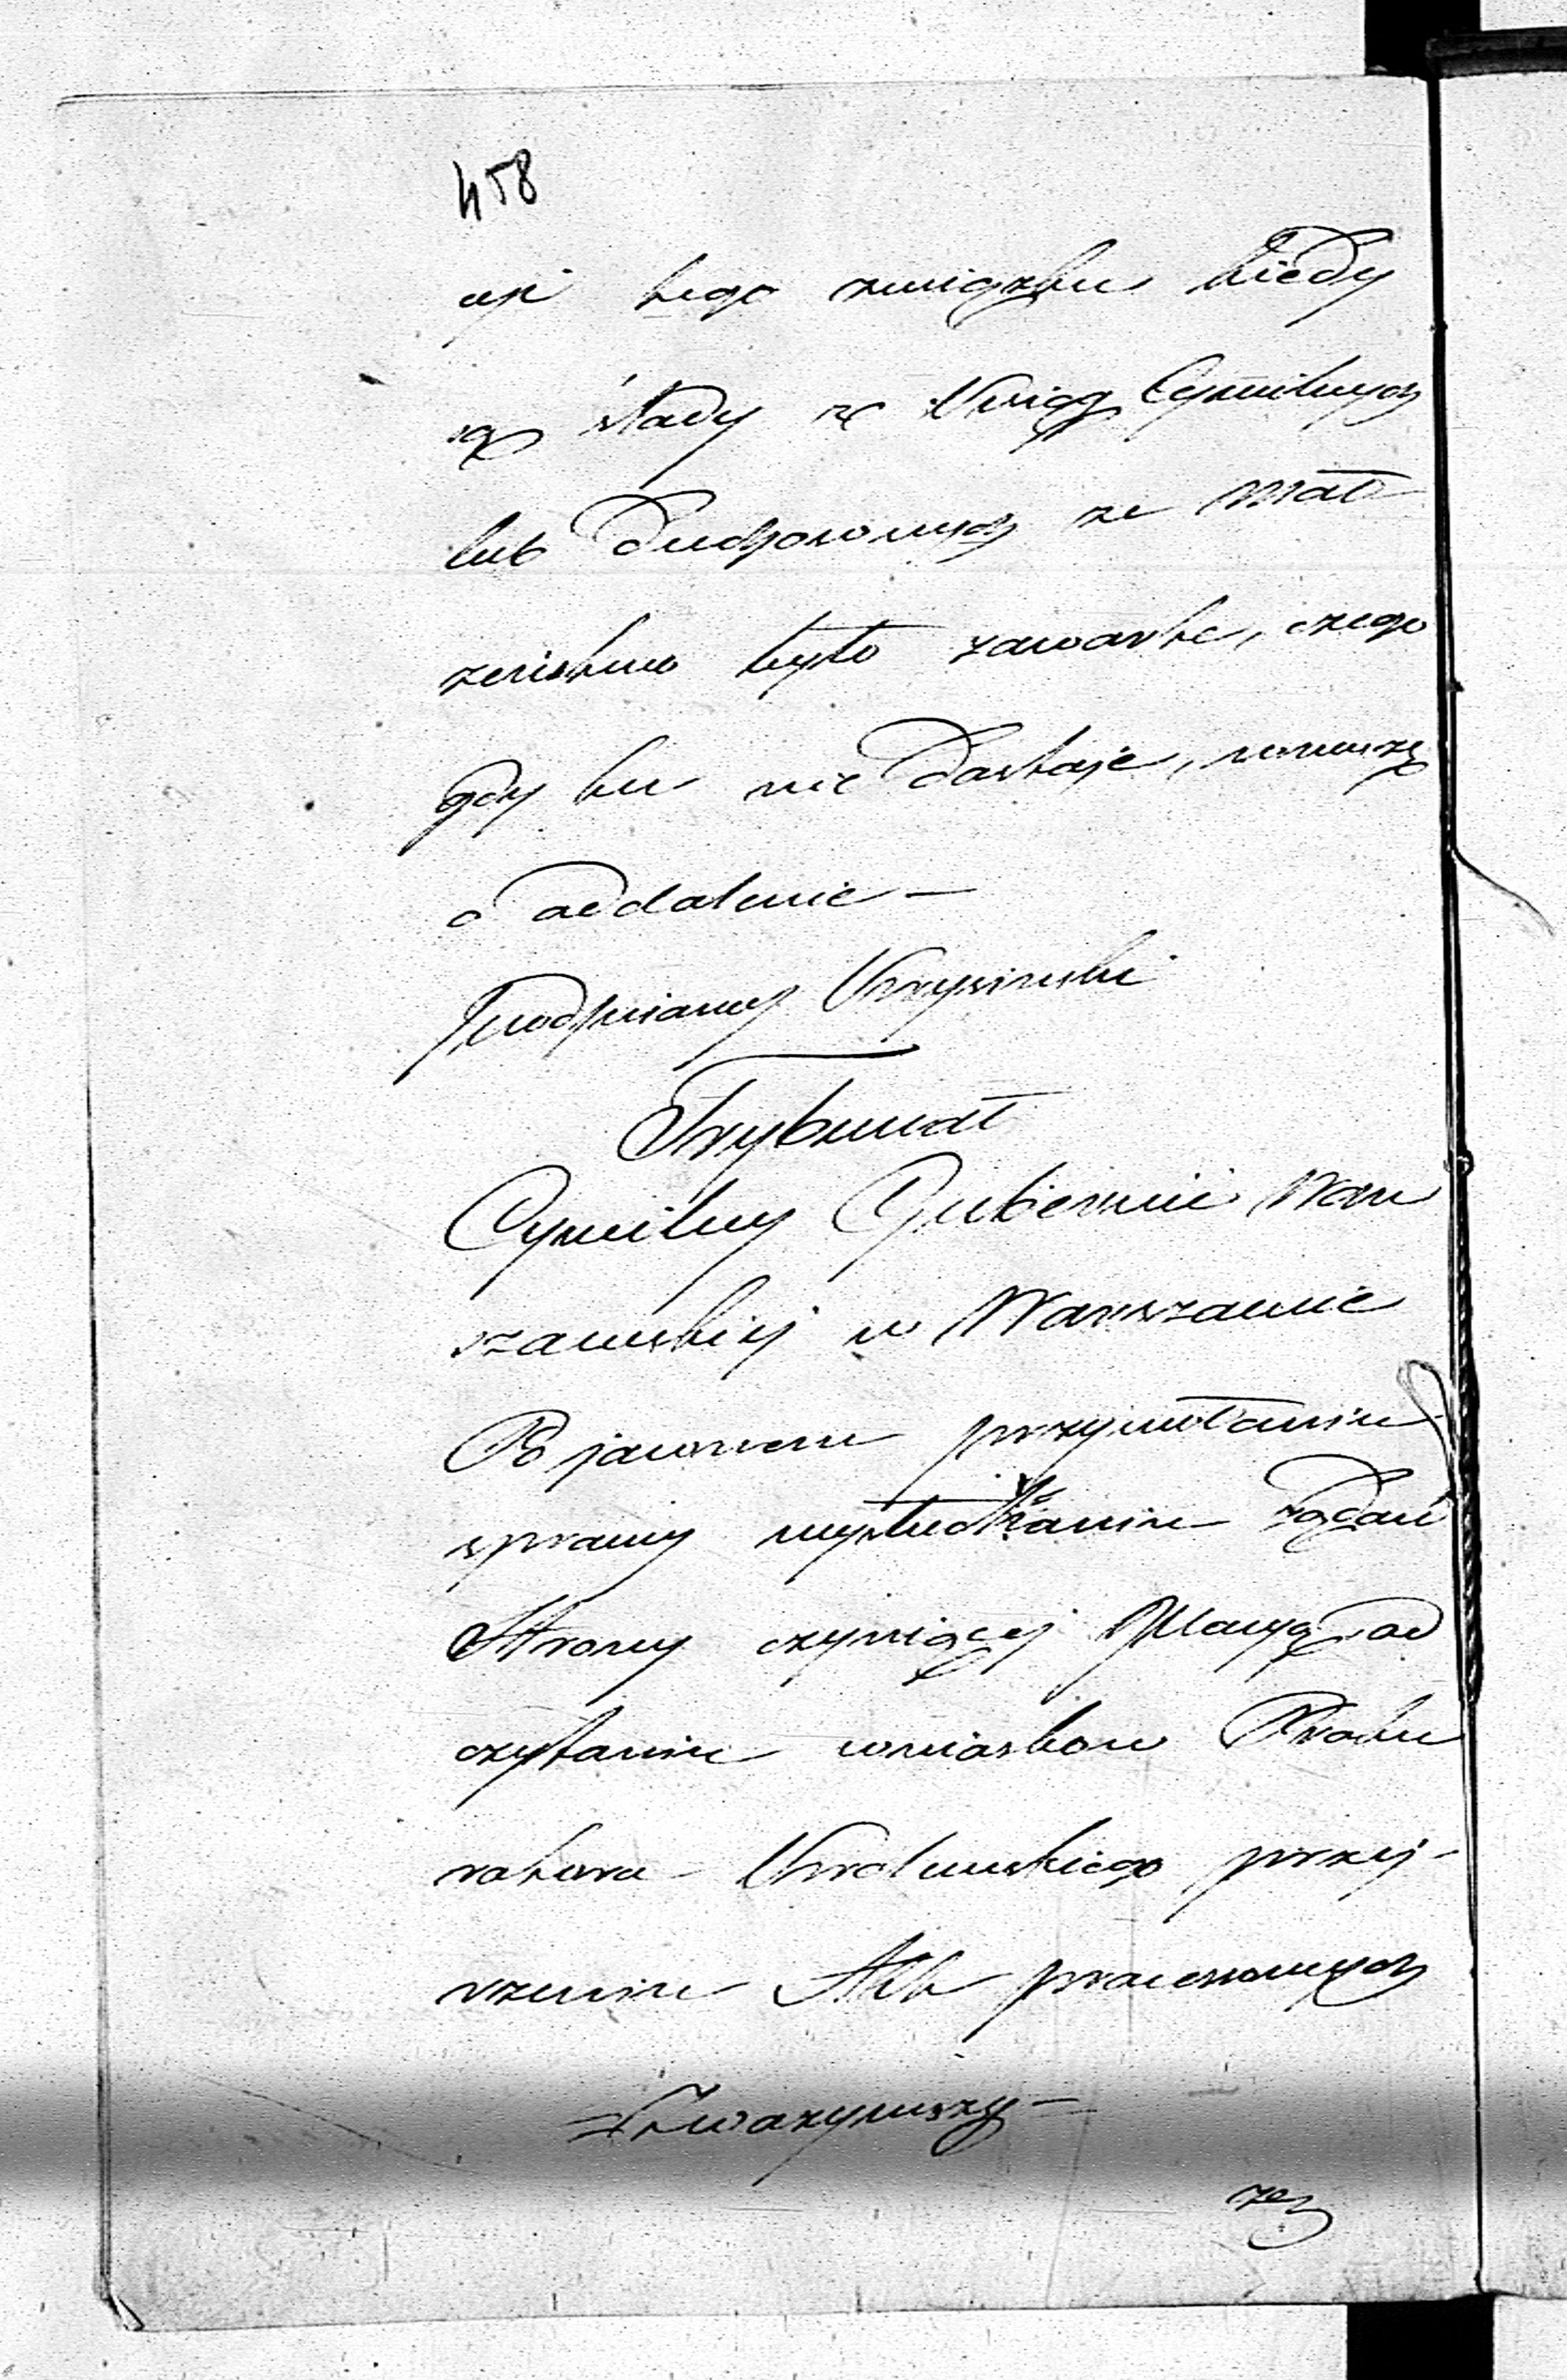 458
cji tego związku kiedy
są ślady z Xsiąg Cywilnych
lub Duchownych ze Mał
zeństwo było zawarte, czego
gdy tu nie dostaje, wnoszę
o oddalenie —
podpisany Krzysiński
Trybunał
Cywilny Gubernii War
szawskiej w Warszawie
Po jawnem przywołaniu
sprawy wysłuchaniu żądań
Strony czyniącej Sławą od
czytaniu wniosków Proku
ratora Królewskiego przej-
rzeniu Akt processowych
— Zważywszy —
ze